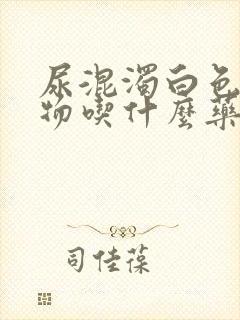 尿混濁白色
物喫什麼藥
司佳葆